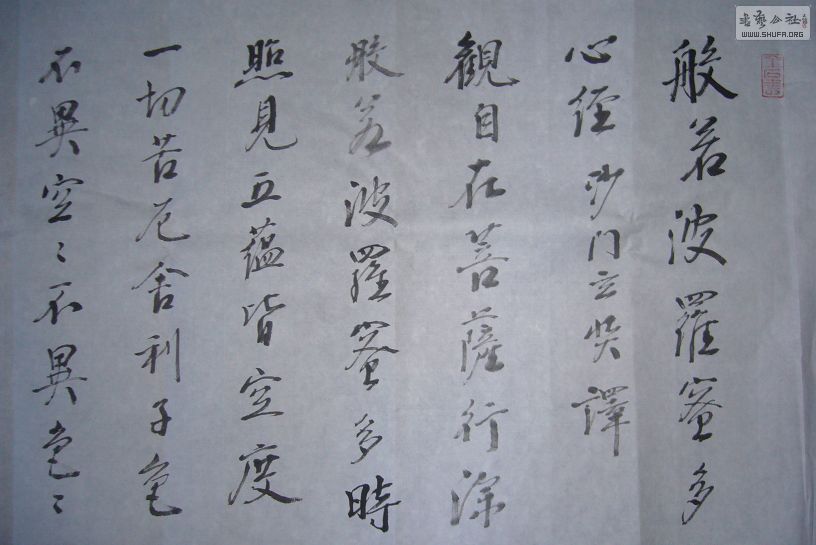 般若波羅蜜多
心経沙门玄奘譯
觀自在菩薩行深
般若波羅蜜多時
照見五蕴皆空度
一切苦厄舍利子色
不異空〻不異色〻
書藝公社
WWW.SHUFA.ORG